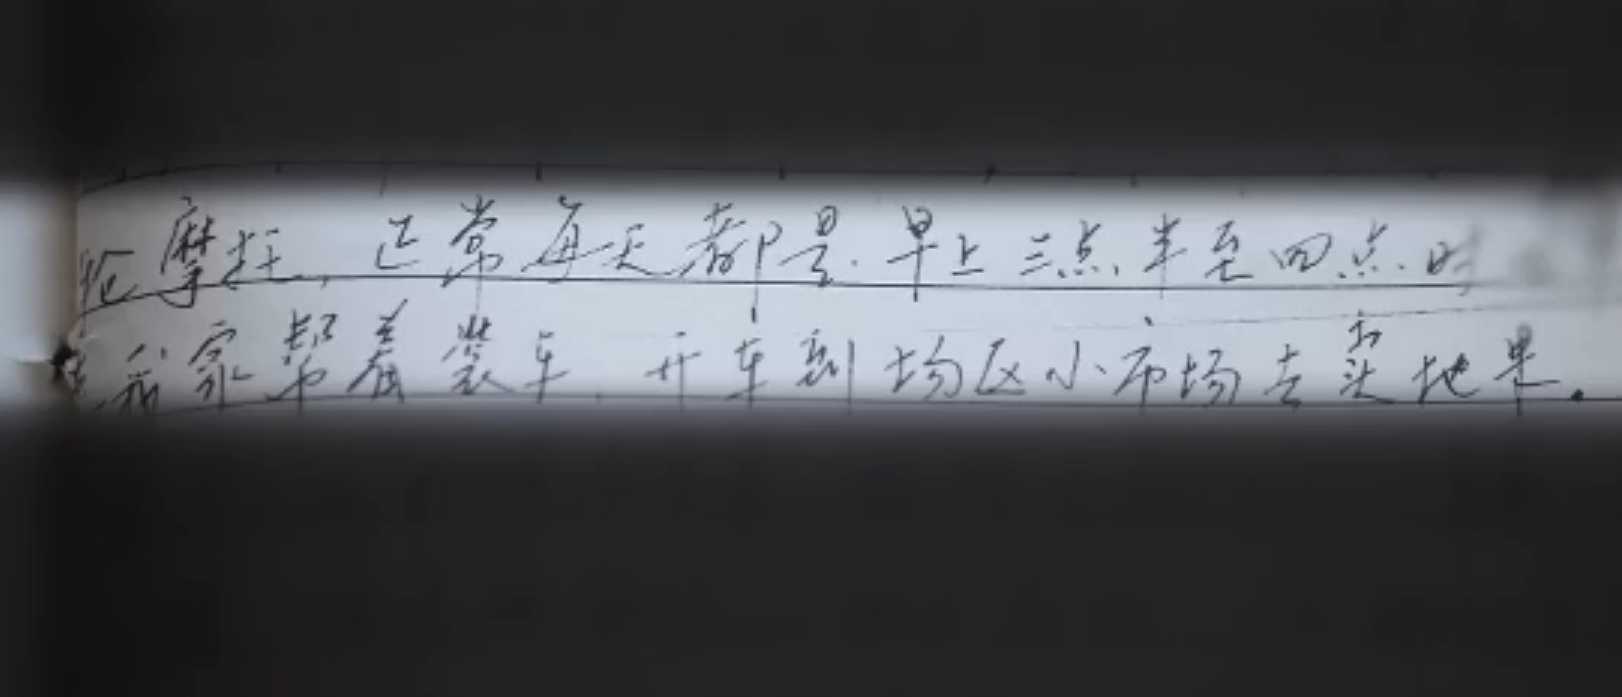 轮摩托,正常每天都是早上三点半至四点时
我家帮着装车,开车到场区小市场去卖地果。